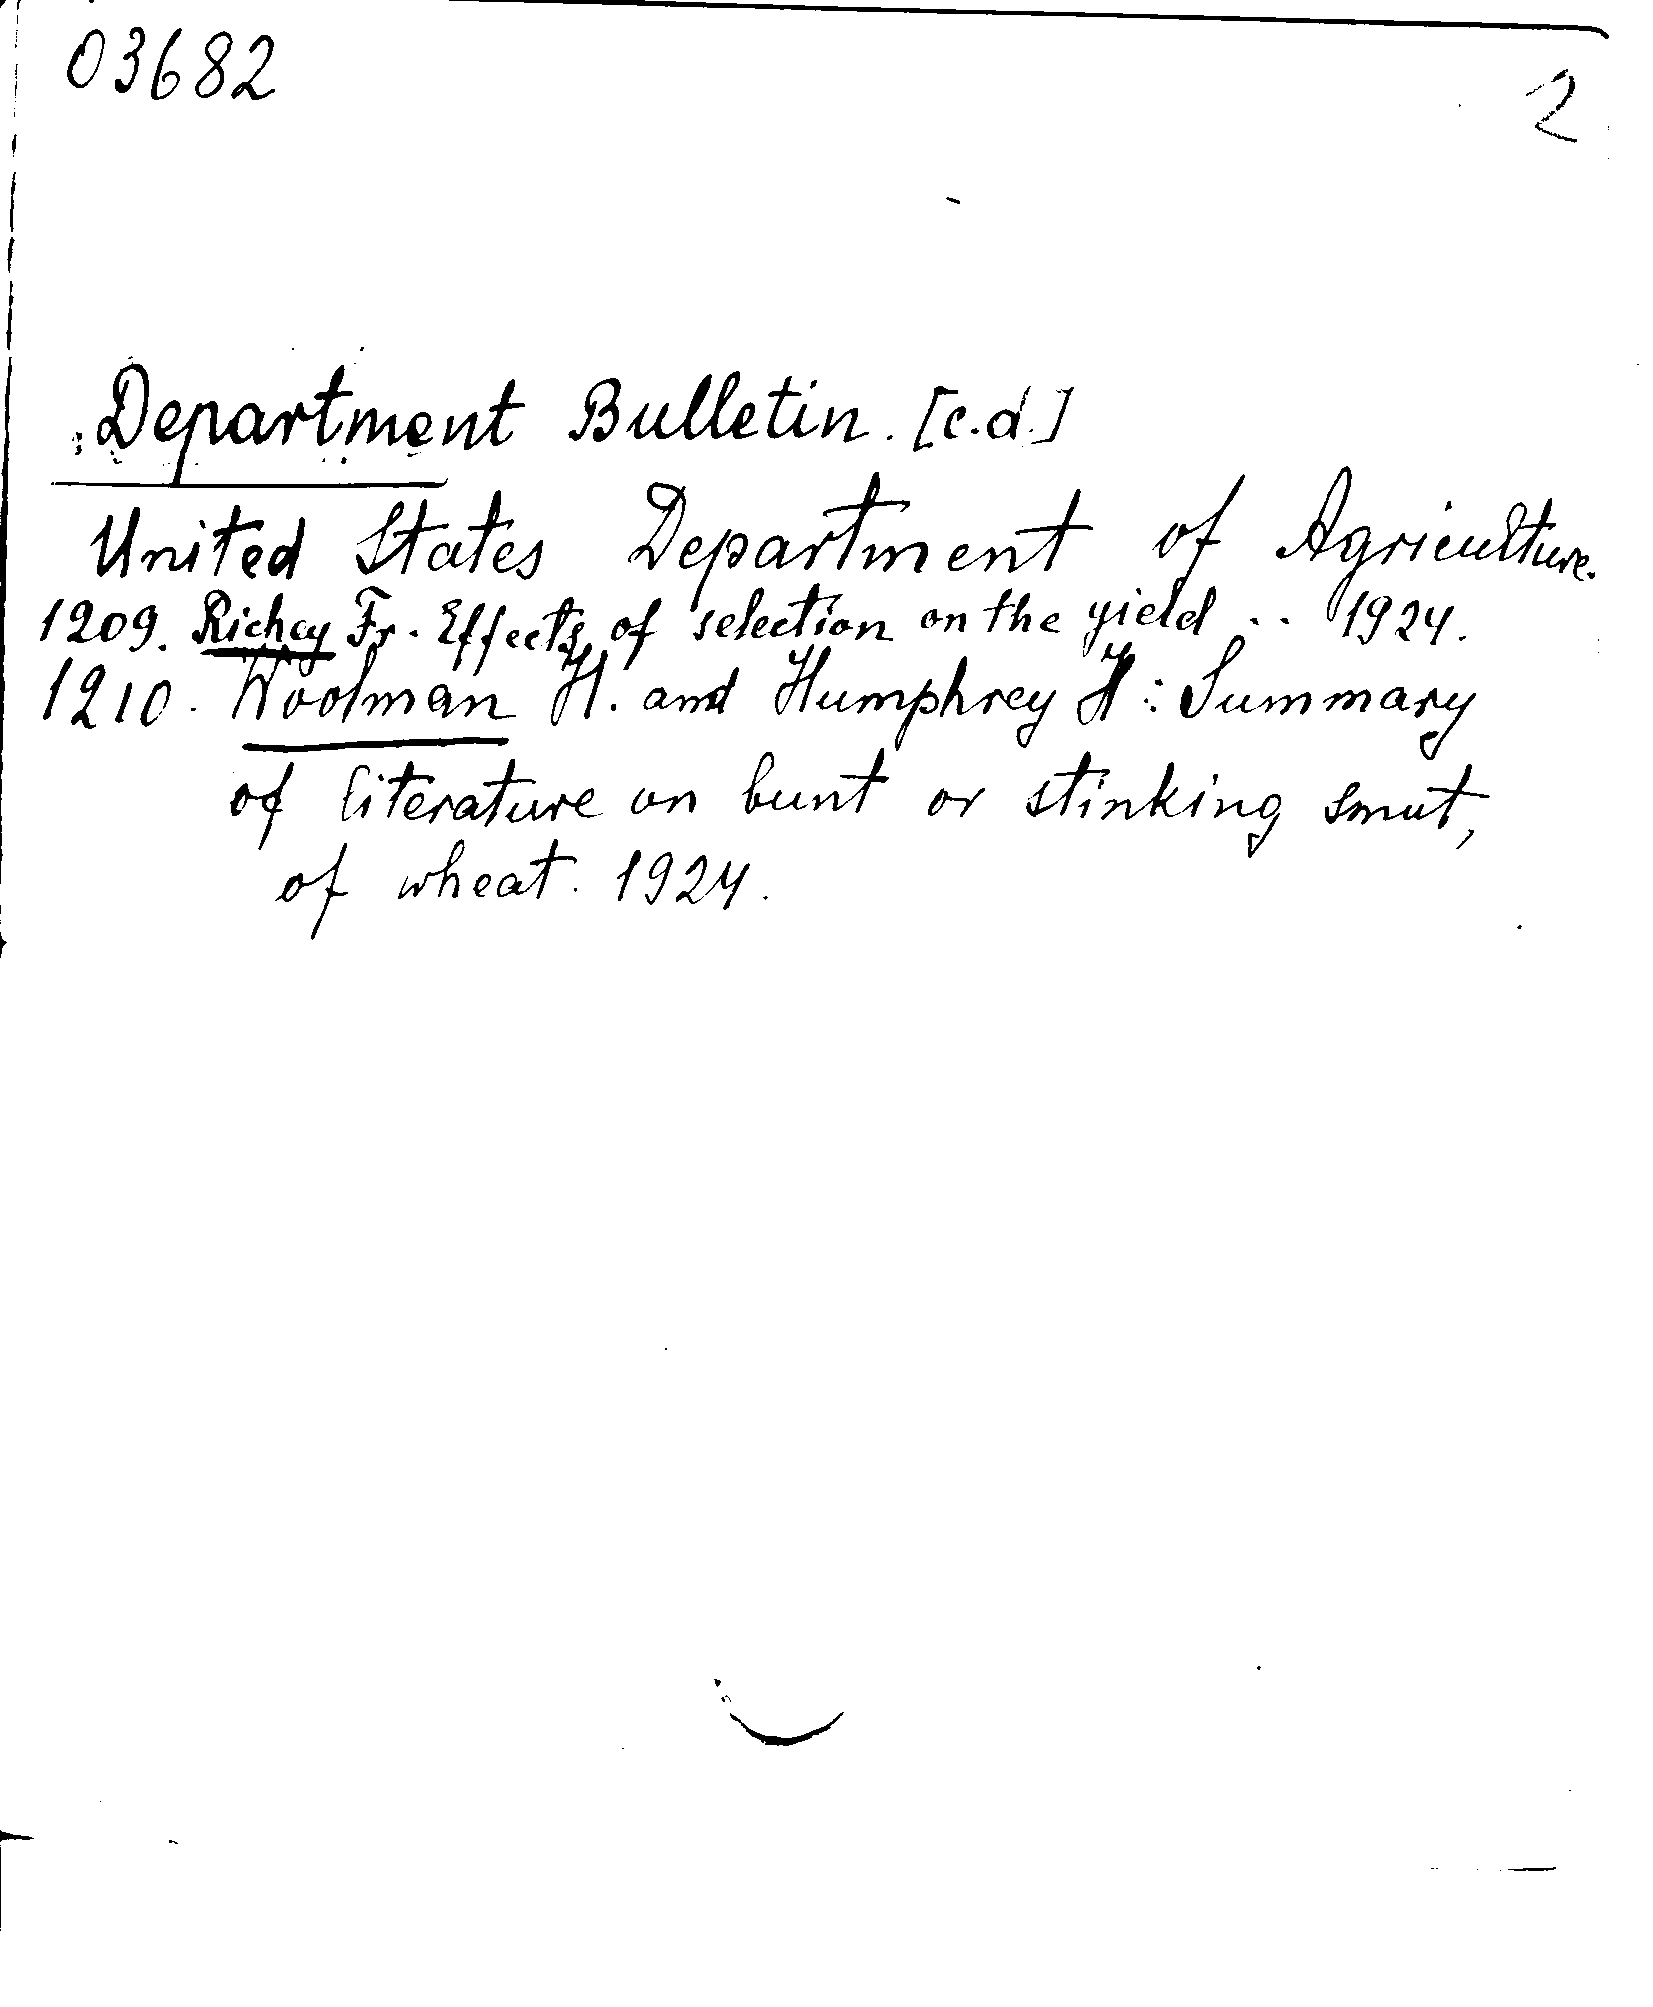 03682
2
Department Bulletin. [c.d.]
United States Department of Agriculture.
1209. Richey Fr. Effects of selection on the yield .. 1924.
1210. Woolman H. and Humphrey H.: Summary
of literature on bunt or stinking smut,
of wheat. 1924.